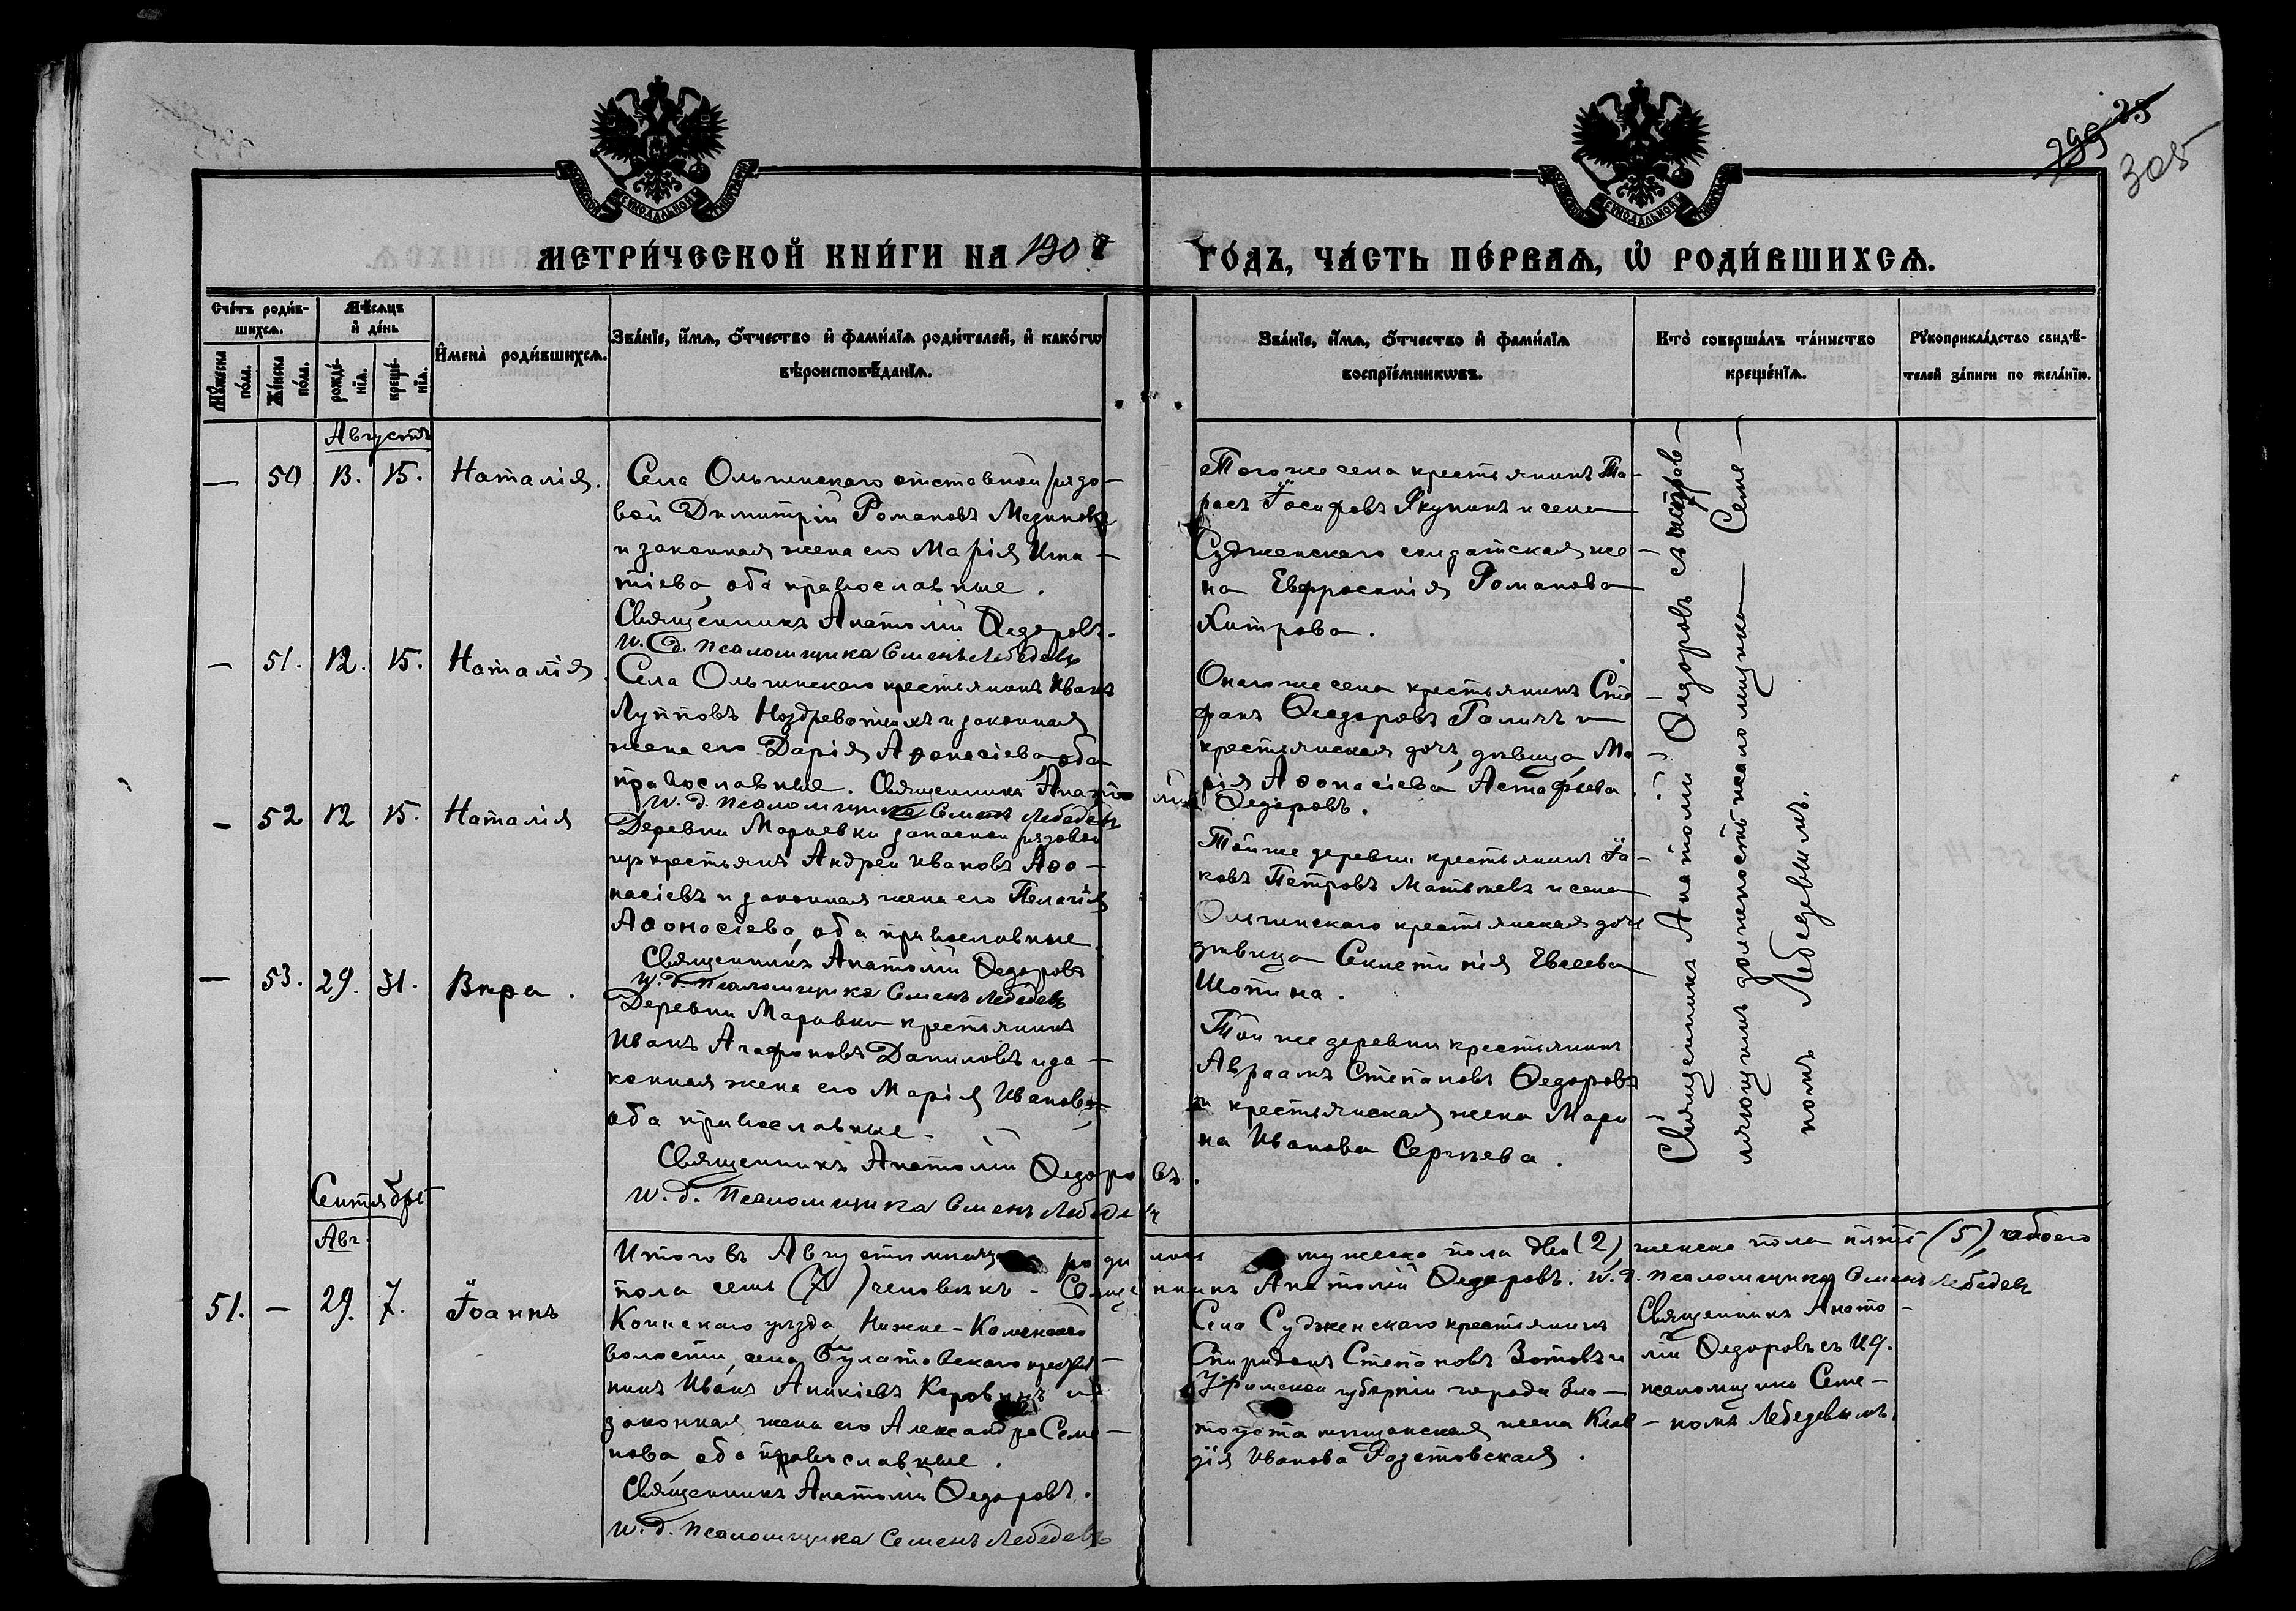 299 28
305
МЕТРИ́ЧЕСКОЙ КНИ́ГИ НА 1908 ГО́ДЪ, ЧА́СТЬ ПЕ́РВАѦ, Ѡ҆ РОДИ́ВШИХСѦ.
Сче́тъ роди́в-
шихсѧ.
Мꙋ́жеска по́ла.
Же́нска по́ла.
Мѣ́сѧцъ
и҆ де́нь
рожде́-
нїѧ.
креще́-
нїѧ.
И҆мена̀ роди́вшихсѧ.
Зва́нїе, и҆́мѧ, ѻ҆́тчество и҆ фами́лїѧ роди́телей, и҆ како́гѡ
вѣроисповѣ́данїѧ.
Зва́нїе, и҆́мѧ, ѻ҆́тчество и҆ фами́лїѧ
воспрїе́мникѡвъ.
Кто̀ соверша́лъ та́инство
креще́нїѧ.
Рꙋкоприкла́дство свидѣ́-
телей за́писи по жела́нїю.
Августъ
— 50 13. 15. Наталія.
Села Ольгинскаго отставной рядо-
вой Димитрій Романовъ Мединовъ
и законная жена его Марія Игна-
тіева, оба православные.
Священникъ Анатолій Ѳедоровъ.
И. д. псаломщика Семенъ Лебедевъ
Тогоже села крестьянинъ Та-
расъ Іосифовъ Якунинъ и села
Судженскаго солдатская же-
на Евфросинія Романова
Хитрова.
— 51. 12. 15. Наталія.
Села Ольгинскаго крестьянинъ Иванъ
Лупповъ Ноздреватыхъ и законная
жена его Дарія Аѳонасіева, оба
православные. Священникъ Анатолій Ѳедоровъ.
И. д. псаломщика Семенъ Лебедевъ
Онагоже села крестьянинъ Сте-
фанъ Ѳеодоровъ Галичъ и
крестьянская дочь, дѣвица, Ма-
рія Аѳонасіева Астафьева.
— 52 12 15. Наталія
Деревни Марьевки запасной рядовой
изъ крестьянъ Андрей Ивановъ Аѳо-
насіевъ и законная жена его Пелагія
Аѳонасіева, оба православные.
Священникъ Анатолій Ѳедоровъ
И. д. псаломщика Семенъ Лебедевъ
Тойже деревни крестьянинъ Іа-
ковъ Петровъ и села
Ольгинскаго крестьянская дочь
дѣвица Евсеева
Шотина.
— 53. 29. 31. Вѣра.
Деревни Марьевки крестьянинъ
Иванъ Агафоновъ Даниловъ и за-
конная жена его Марія Иванова,
оба православные.
Священникъ Анатолій Ѳедоровъ.
И. д. псаломщика Семенъ Лебедевъ
Той же деревни крестьянинъ
Авраамъ Степановъ Ѳедоровъ
и крестьянская жена Мари-
на Иванова Сергѣева.
Священникъ Анатолій Ѳедоровъ съ испра-
вляющимъ должность псаломщика Семе-
номъ Лебедевымъ.
Сентябрь
Итого въ Августѣ мѣсяцѣ родилось мужеска пола два (2), женска пола пять (5), обоего
пола семь (7) человѣкъ. Священникъ Анатолій Ѳедоровъ. И. д. псаломщика Семенъ Лебедевъ
Авг.
51. — 29. 7. Іоаннъ
Каинскаго уѣзда Нижне-Каменской
волости, села Булатовскаго крестья-
нинъ Иванъ Аникіевъ Коровинъ и
законная жена его Александра Семе-
нова оба православные.
Священникъ Анатолій Ѳедоровъ.
И. д. псаломщика Семенъ Лебедевъ
Села Судженскаго крестьянинъ
Спиридонъ Степановъ Зотовъ и
Уфимской губерніи города Зла-
тоуста мѣщанская жена Клав-
дія Иванова Разетовская.
Священникъ Анато-
лій Ѳедоровъ съ И. д.
псаломщика Семе-
номъ Лебедевымъ.